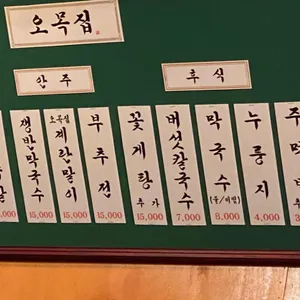 오목집
안주
후식
쟁반막국수
15,000
오목집
계란말이
15,000
부추전
15,000
꽃게탕
추가
15,000
버섯칼국수
7,000
막국수
(물/비빔)
8,000
누룽지
4,000